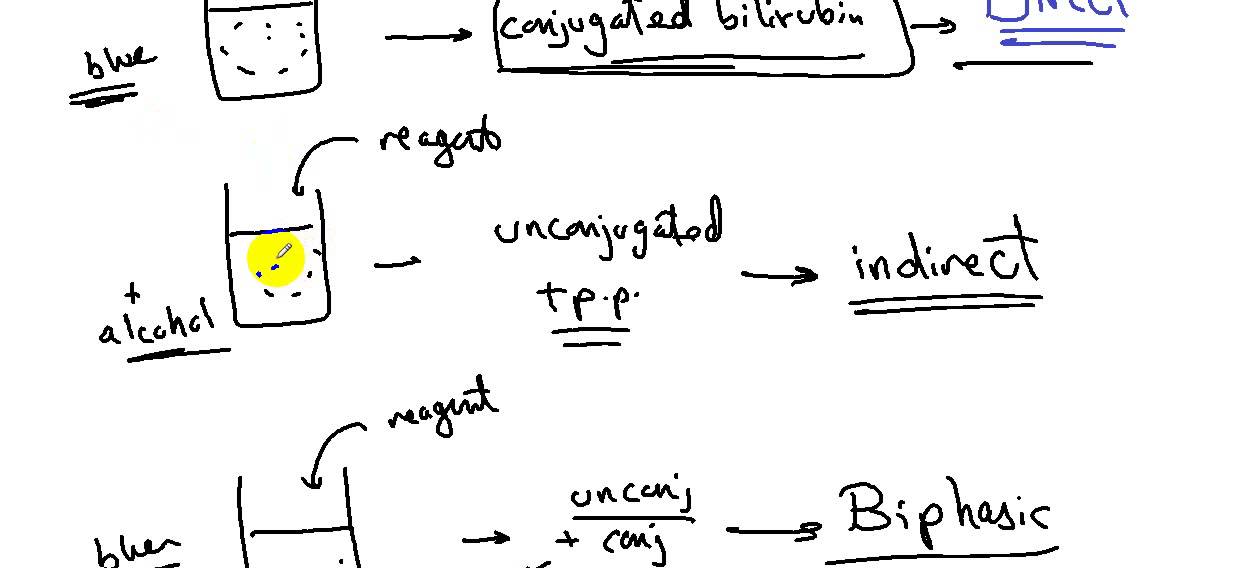 conjugated bilirubin → Direct
blue
reagents
unconjugated
+ p.p. → indirect
+
alcohol
reagent
unconj
+ conj → Biphasic